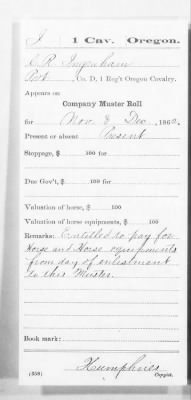 I 1 Cav. Oregon.
S. R. Ingraham
Pvt, Co. D, 1 Reg't Oregon Cavalry.
Appears on
Company Muster Roll
for Nov & Dec, 186
Present or absent Present
Stoppage, $ 100 for
Due Gov't, $ 100 for
Valuation of horse, $ 100
Valuation of horse equipments, $ 100
Remarks: Entitled to pay for
Horse and Horse equipments
from day of enlistment
to this Muster.
Book mark:
Humphries
(358) Copyist.